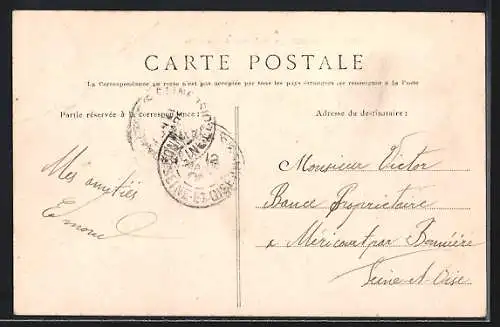 CARTE POSTALE
La Correspondance au recto n'est pas acceptée par tous les pays étrangers se renseigner à la Poste
Partie réservée à la correspondance :
Adresse du destinataire :
Mes amitiés
Monsieur Victor
Propriétaire
à Méricourt par Bonnière
Seine-et-Oise
SEINE-ET-OISE